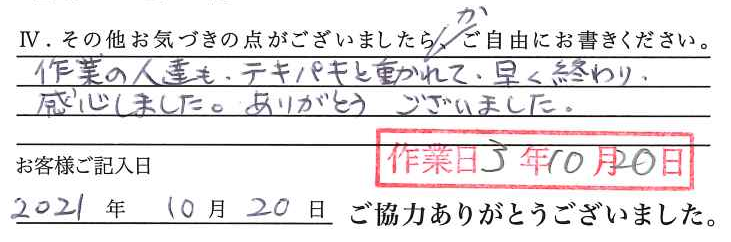 か
Ⅳ．その他お気づきの点がございましたら、ご自由にお書きください。
作業の人達も、テキパキと動かれて、早く終わり、
感心しました。ありがとう ございました。
作業日 3 年 10 月 20 日
お客様ご記入日
2021 年 10 月 20 日 ご協力ありがとうございました。